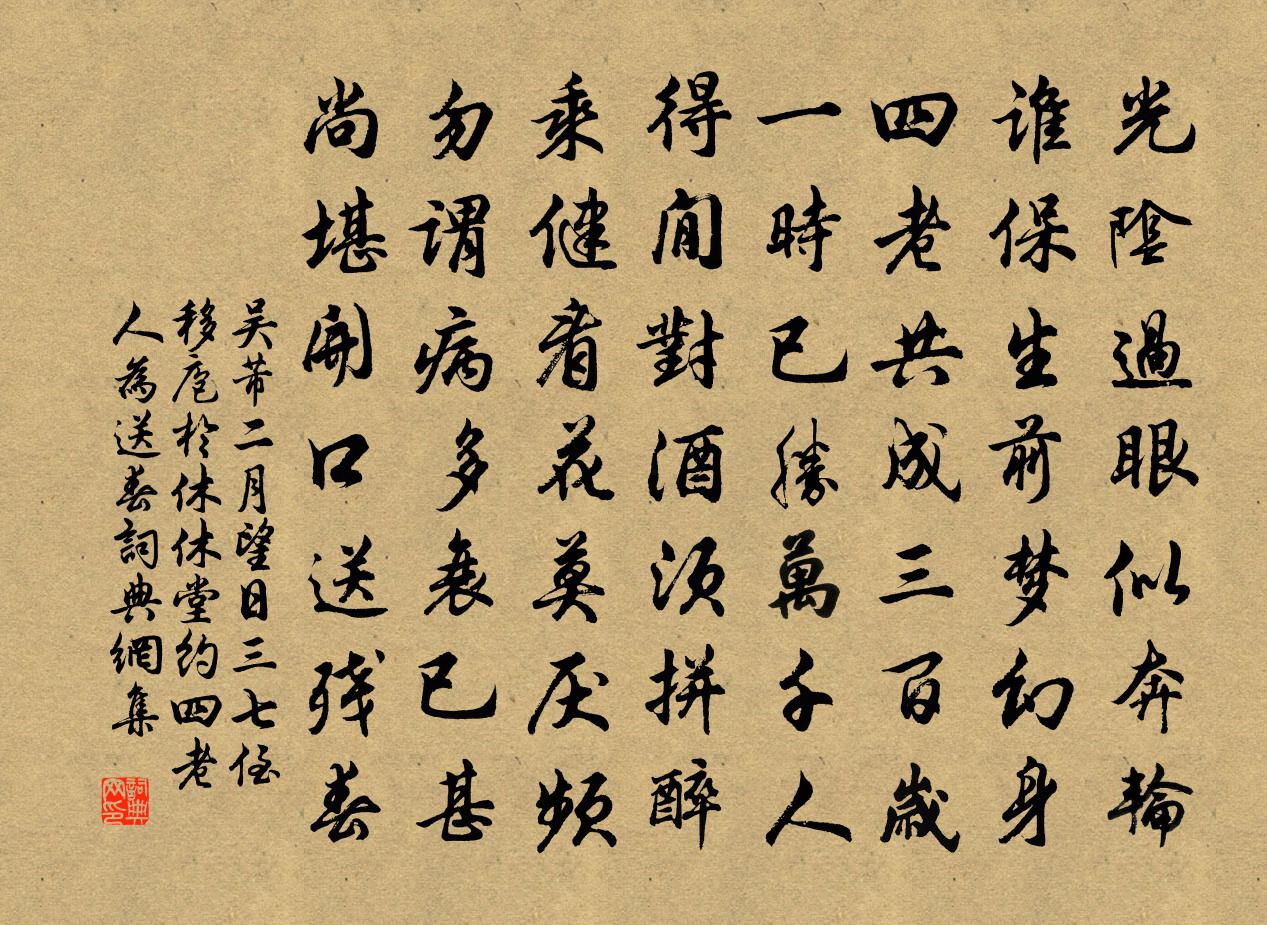 光陰過眼似奔輪
谁保生前梦幻身
四老共成三百歲
一時已勝萬千人
得閒對酒須拼醉
乘健看花莫厌頻
勿謂病多衰已甚
尚堪開口送残春
吴芾二月望日三七侄
移庖於休休堂約四老
人為送春詞典網集
詞典
网印